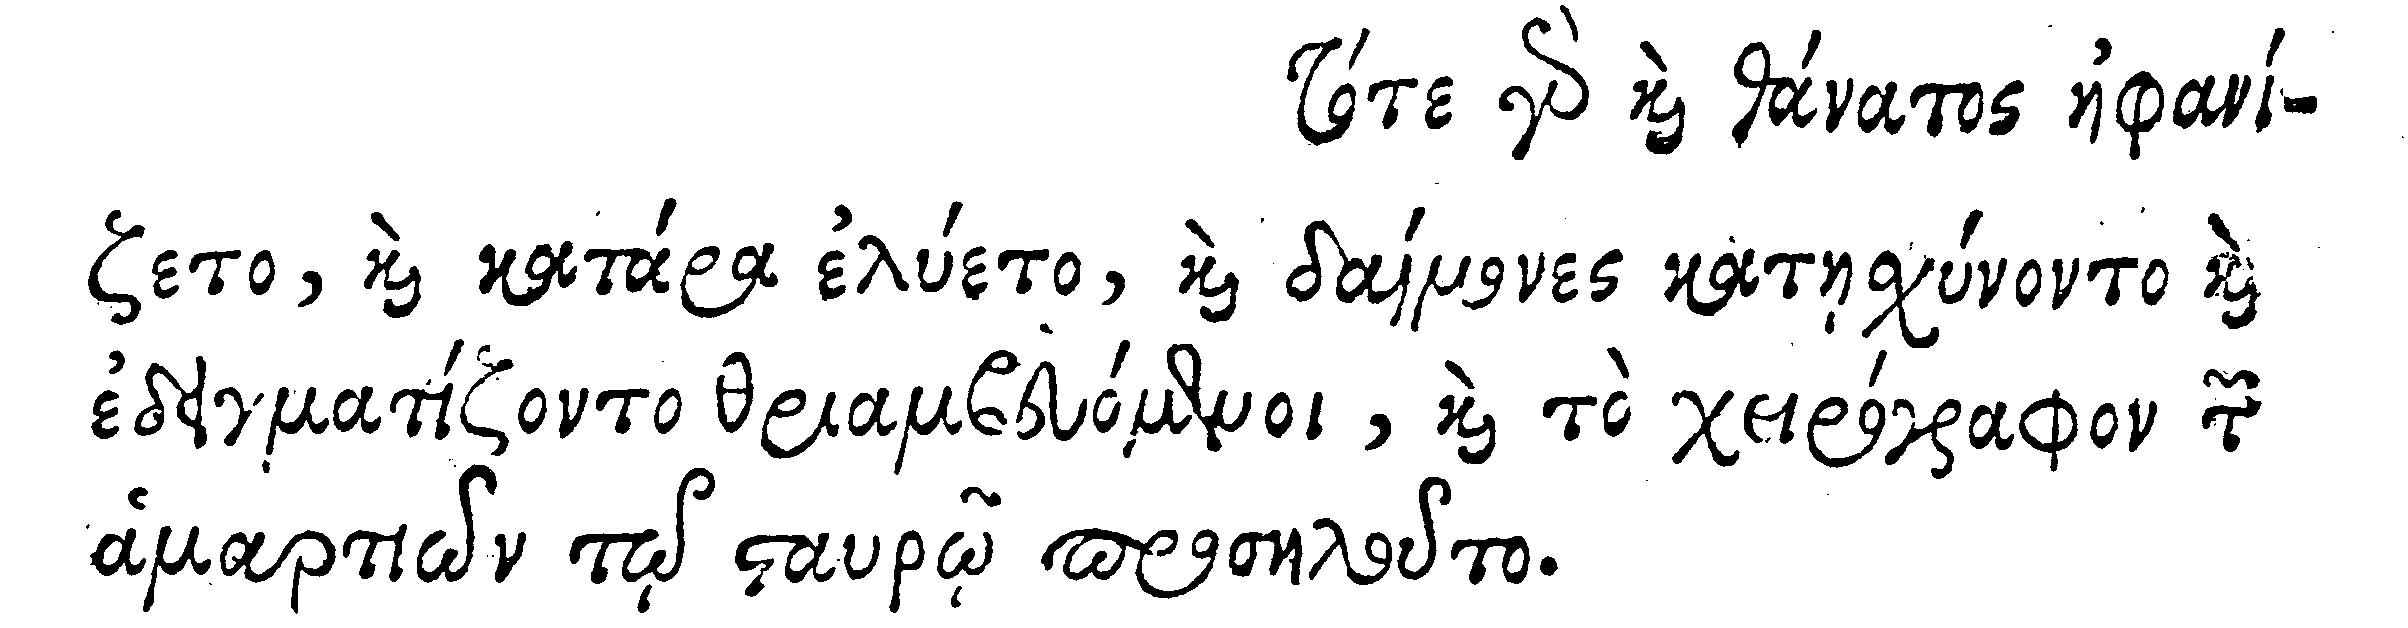 τότε γὰρ καὶ θάνατος ἠφανί-
ζετο, καὶ κατάρα ἐλύετο, καὶ δαίμονες κατῃσχύνοντο καὶ
ἐδειγματίζοντο θριαμβευόμενοι, καὶ τὸ χειρόγραφον τῶν
ἁμαρτιῶν τῷ σταυρῷ προσηλοῦτο.